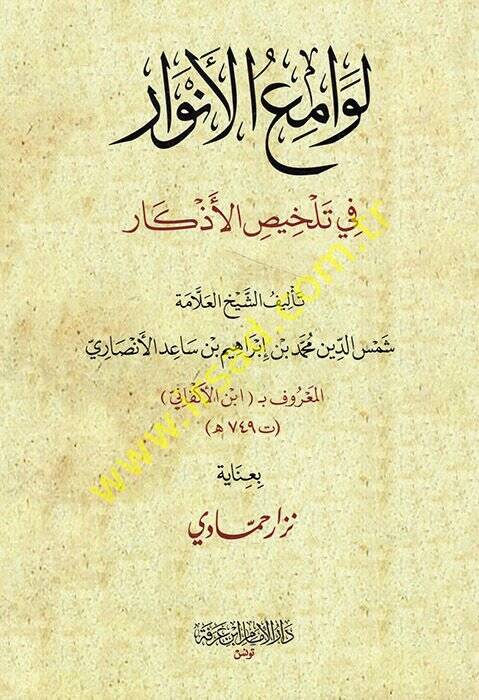 لَوَامِعُ الأَنْوَار
فِي تَلْخِيصِ الأَذْكَار
تَأْلِيفُ الشَّيْخِ العَلَّامَة
شَمْسُ الدِّين مُحَمَّد بْن إِبْرَاهِيم بْن سَاعِد الأَنْصَارِيّ
المَعْرُوف بـ ( ابْنِ الأَكْفَانِيّ )
(ت ٧٤٩ هـ)
بِعِنَايَة
نزار حمّادي
دَارُ الإِمَام ابْن عَرَفَة
تونس
www.irsad.com.tr